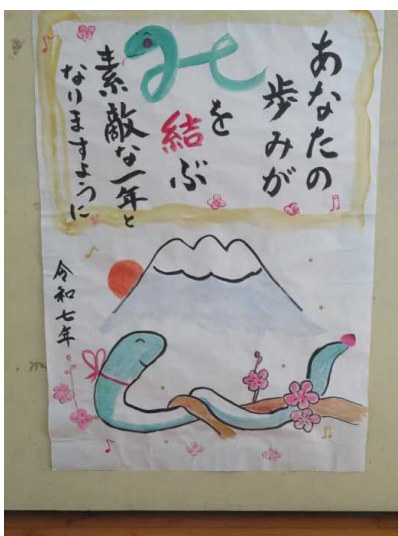 あなたの
歩みが
みを結ぶ
素敵な一年と
なりますように
令和七年